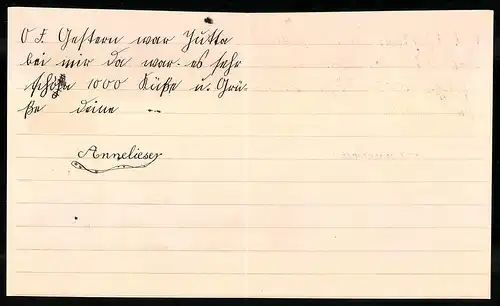 O E Gestern war Jutta
bei mir da war es sehr
schön 1000 Küße u. Grü-
ße deine
Annelieser